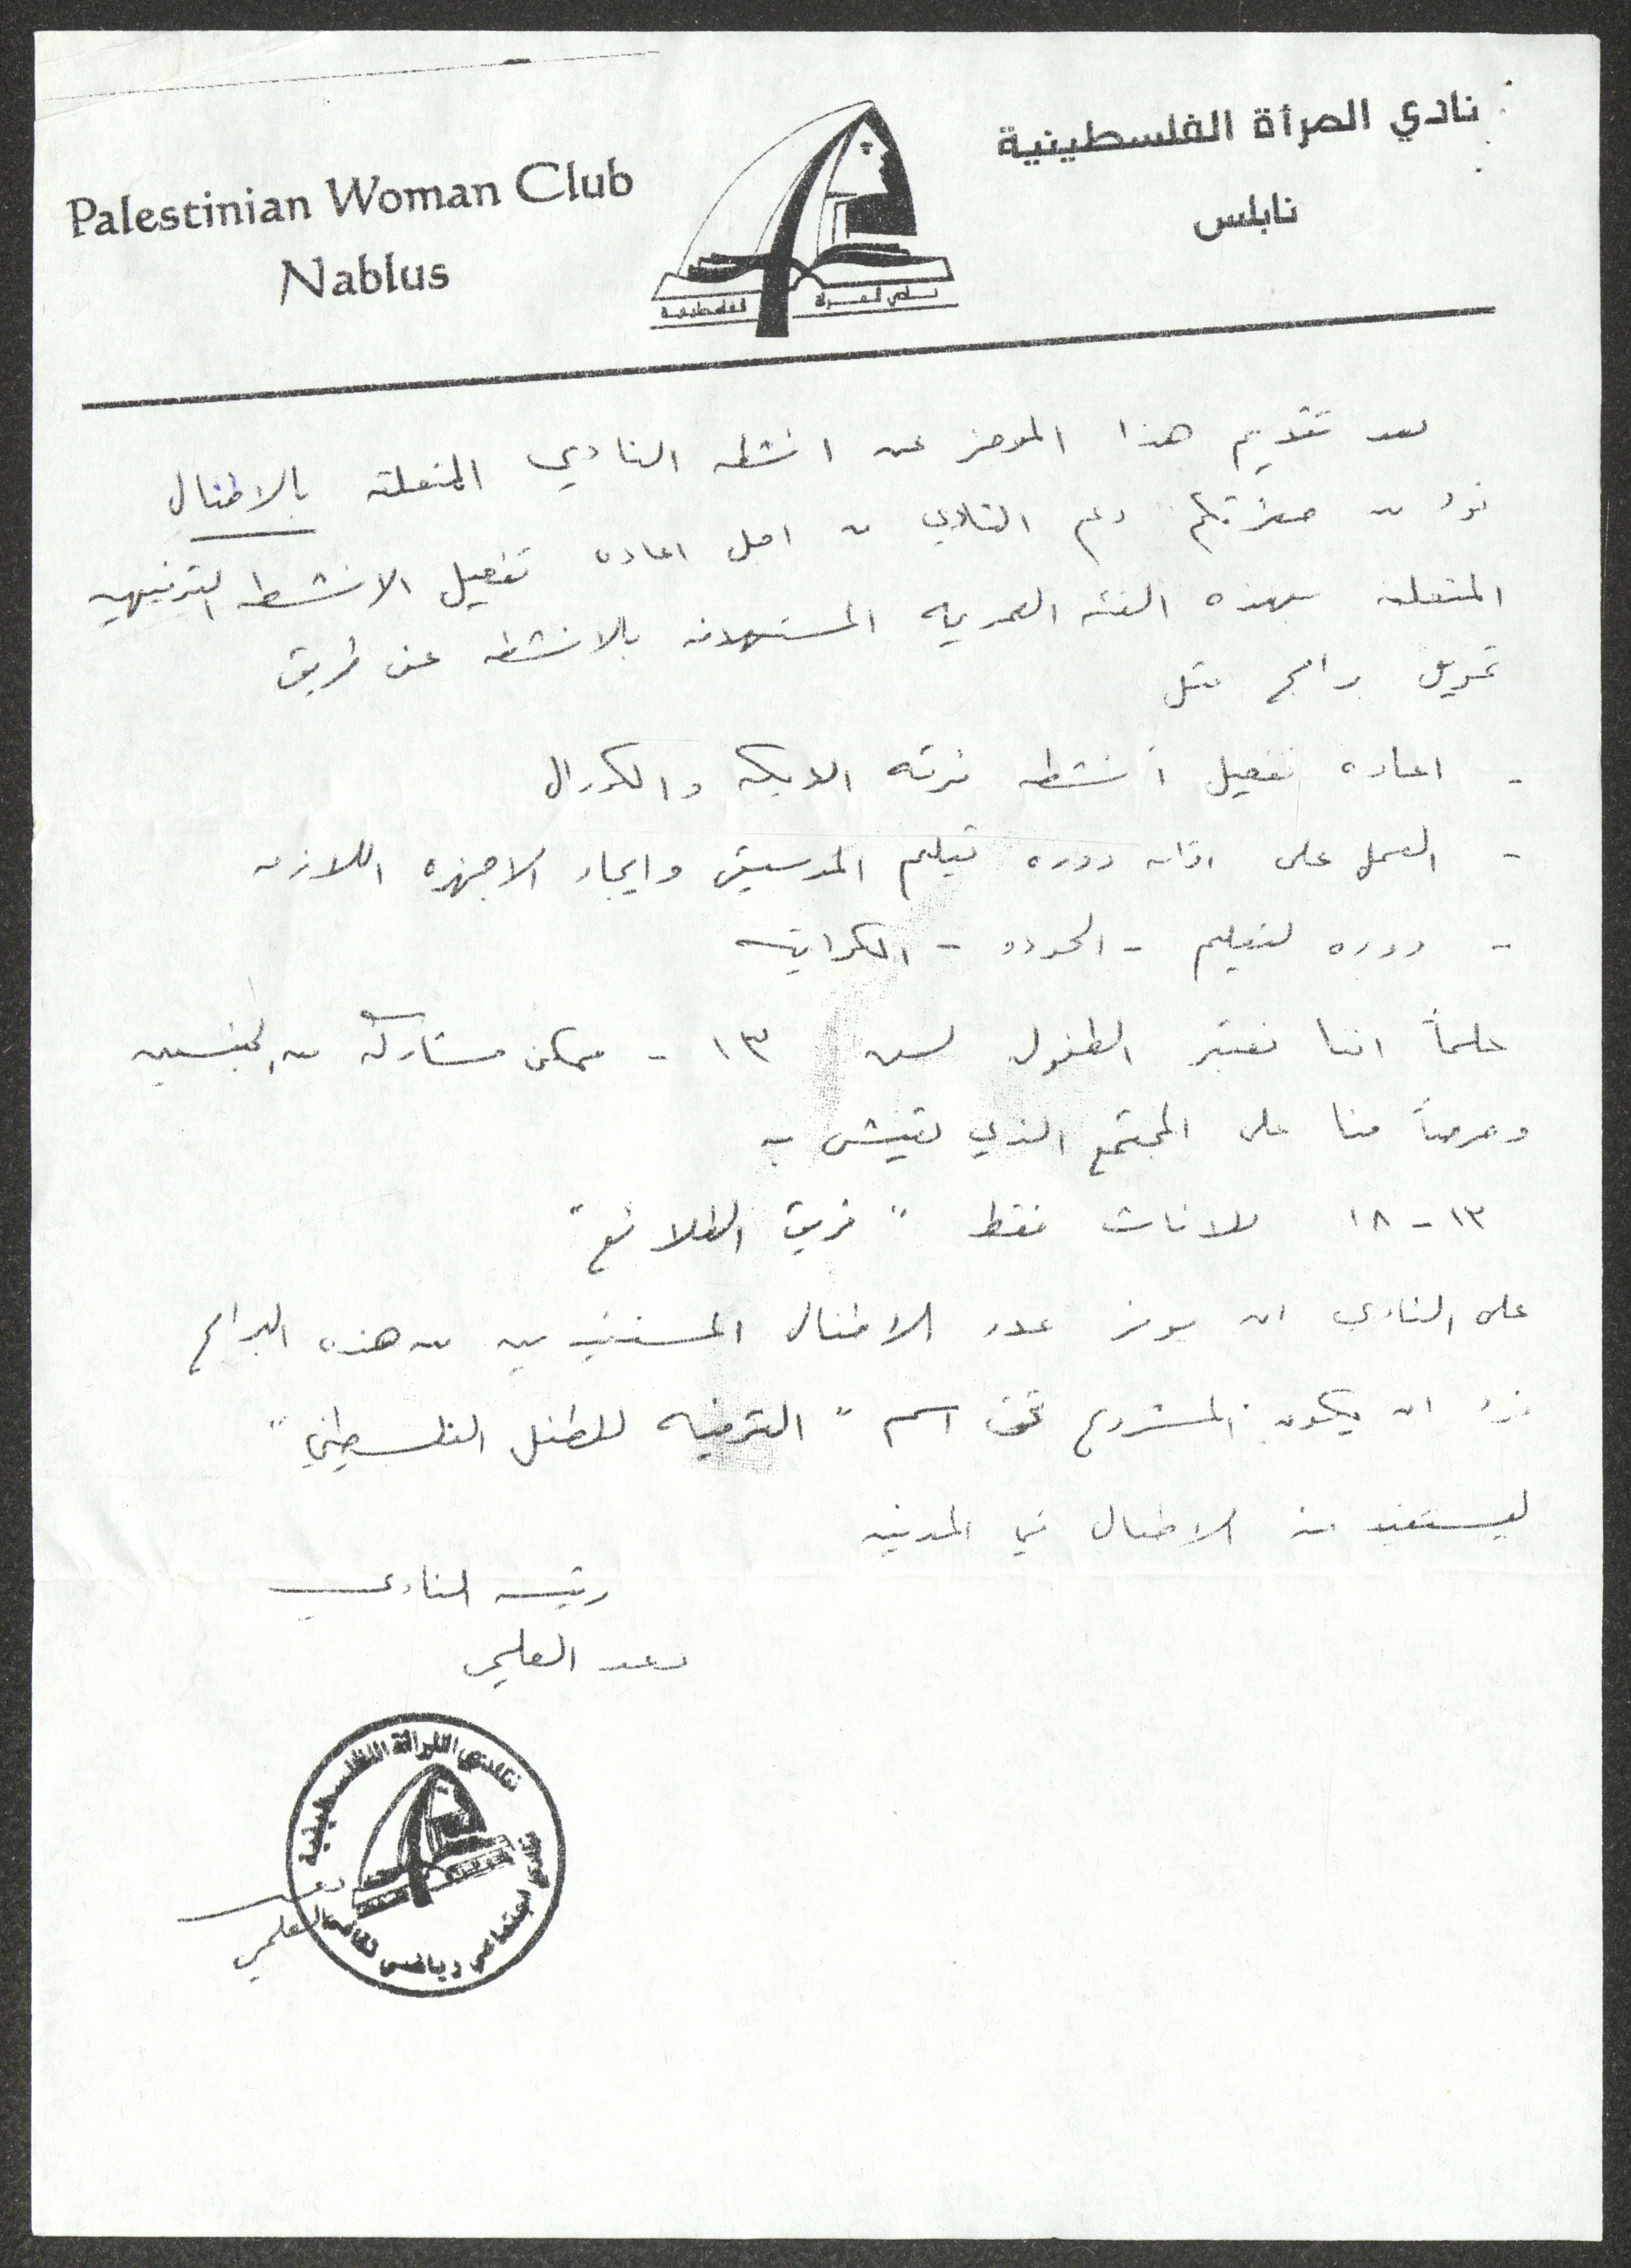 نادي المرأة الفلسطينية
نابلس
Palestinian Woman Club
Nablus
نادي المرأة الفلسطينية
بعد تقديم هذا الموجز عن انشطه النادي المتعلقه بالاطفال
نود من حضرتكم دعم النادي من اجل اعاده تفعيل الانشطه الترفيهيه
المتعلقه بهذه الفئه العمريه المستهدفه بالانشطه عن طريق
تمويل برامج مثل
- اعاده تفعيل أنشطه فرقه الدبكه والكورال
- العمل على اقامه دوره تعليم الموسيقى وايجاد الاجهزه اللازمه
- دوره لتعليم - الجودو - الكراتيه
علماً اننا نعتبر الطفل لسن ١٣ - ممكن مشاركة من الجنسين
وحرصاً منا على المجتمع الذي نعيش به
١٣ - ١٨ للاناث فقط " فريق الطلائع "
على النادي ان يوفر عدد الاطفال المستفيدين من هذه البرامج
نود ان يكون المشروع تحت اسم " الترفيه للطفل الفلسطيني "
ليستفيد منه الاطفال في المدينه
رئيسه النادي
العلمي
نادي المرأة الفلسطينية
نادي اجتماعي رياضي ثقافي
العلمي